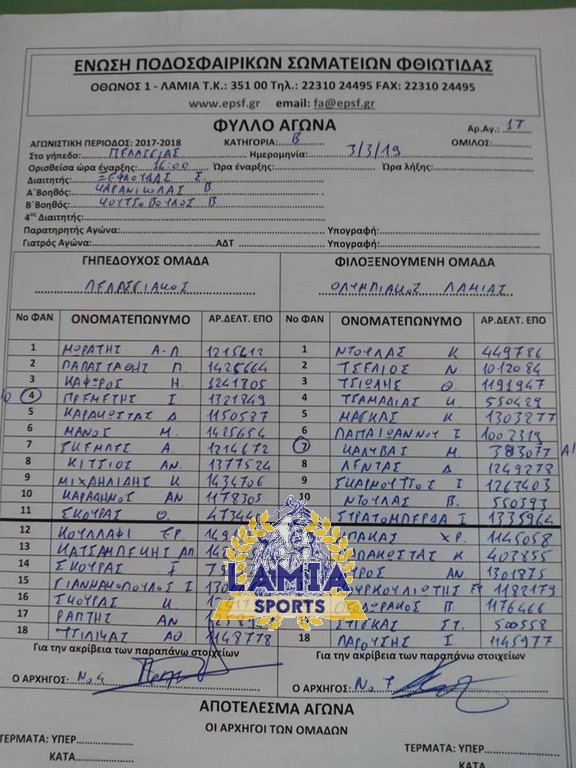 ΕΝΩΣΗ ΠΟΔΟΣΦΑΙΡΙΚΩΝ ΣΩΜΑΤΕΙΩΝ ΦΘΙΩΤΙΔΑΣ
ΟΘΩΝΟΣ 1 - ΛΑΜΙΑ Τ.Κ.: 351 00 Τηλ.: 22310 24495 FAX: 22310 24495
www.epsf.gr email: fa@epsf.gr
ΦΥΛΛΟ ΑΓΩΝΑ Αρ.Αγ.: 17
ΑΓΩΝΙΣΤΙΚΗ ΠΕΡΙΟΔΟΣ: 2017-2018 ΚΑΤΗΓΟΡΙΑ: Β ΟΜΙΛΟΣ:
Στο γήπεδο: ΠΕΛΑΣΓΙΑΣ Ημερομηνία: 3/3/19
Ορισθείσα ώρα έναρξης: 16:00 Ώρα έναρξης: Ώρα λήξης:
Διαιτητής: ΞΕΦΛΟΥΔΑΣ Σ.
Α΄Βοηθός: ΚΑΡΑΝΙΚΟΛΑΣ Β
Β΄Βοηθός: ΚΟΥΤΣΟΒΟΥΛΟΣ Β
4ος Διαιτητής:
Παρατηρητής Αγώνα: Υπογραφή:
Γιατρός Αγώνα: ΑΔΤ Υπογραφή:
ΓΗΠΕΔΟΥΧΟΣ ΟΜΑΔΑ ΦΙΛΟΞΕΝΟΥΜΕΝΗ ΟΜΑΔΑ
ΠΕΛΑΣΓΙΑΚΟΣ ΟΛΥΜΠΙΑΚΟΣ ΛΑΜΙΑΣ
Νο ΦΑΝ ΟΝΟΜΑΤΕΠΩΝΥΜΟ ΑΡ.ΔΕΛΤ. ΕΠΟ Νο ΦΑΝ ΟΝΟΜΑΤΕΠΩΝΥΜΟ ΑΡ.ΔΕΛΤ. ΕΠΟ
1 ΜΩΡΑΤΗΣ Α-Π. 1215612 1 ΝΤΟΥΛΑΣ Κ 449786
2 ΠΑΠΑΣΤΑΘΗΣ Π. 1425664 2 ΤΣΕΛΙΟΣ Ν 1012084
3 ΚΑΦΩΡΟΣ Η. 1241805 3 ΤΣΙΩΛΗΣ Θ. 1191947
4 ΠΡΕΜΕΤΗΣ Ι 1321849 4 ΤΣΑΜΑΔΙΑΣ Κ 550429
5 ΚΑΡΑΚΩΣΤΑΣ Δ 1150587 5 ΜΑΓΚΑΣ Κ 1303277
6 ΜΑΝΟΣ Μ. 1425654 6 ΠΑΠΑΙΩΑΝΝΟΥ Ι 1002319
7 Α 1214672 7 ΚΑΛΥΒΑΣ Μ. 383077
8 ΚΙΤΣΙΟΣ ΑΝ. 1377524 8 ΛΕΝΤΑΣ Δ 1249278
9 ΜΙΧΑΗΛΙΔΗΣ Κ 1434706 9 ΣΚΑΡΜΟΥΤΣΟΣ Ι 1263403
10 ΚΑΡΑΘΗΜΟΣ ΑΝ 1178305 10 ΝΤΟΥΛΑΣ Β. 550393
11 ΣΚΟΥΡΑΣ Θ. ΣΤΡΑΤΟΜΠΕΡΔΑ Ι 1335964
12 ΚΟΥΛΛΑΦΙ ΕΡ. ΧΡ. 1145058
13 ΚΑΤΣΑΜΠΕΚΗΣ ΑΠ. Κ 403855
14 ΣΚΟΥΡΑΣ ΑΝ 1301875
15 ΓΙΑΝΝΑΚΟΠΟΥΛΟΣ Ι 1182179
16 ΣΚΟΥΡΑΣ Κ Π. 1176466
17 ΡΑΠΤΗΣ ΑΝ ΣΤ. 500558
18 ΑΘ. 1148778 18 ΠΑΡΟΥΣΗΣ Ι 1145977
LAMIA
SPORTS
Για την ακρίβεια των παραπάνω στοιχείων Για την ακρίβεια των παραπάνω στοιχείων
Ο ΑΡΧΗΓΟΣ: Νο 4 Ο ΑΡΧΗΓΟΣ: Νο 7
ΑΠΟΤΕΛΕΣΜΑ ΑΓΩΝΑ
ΟΙ ΑΡΧΗΓΟΙ ΤΩΝ ΟΜΑΔΩΝ
ΤΕΡΜΑΤΑ: ΥΠΕΡ ΤΕΡΜΑΤΑ: ΥΠΕΡ
ΚΑΤΑ ΚΑΤΑ